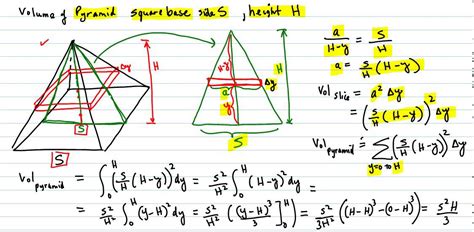 Volume of Pyramid square base side S, height H
a/(H-y) = S/H
a = S/H (H-y)
Vol slice = a² Δy
= (S/H (H-y))² Δy
Vol pyramid = Σ y=0→H (S/H (H-y))² Δy
Δy
H
S
S
H-y
a
y
Δy
H
S
Vol pyramid = ∫₀ᴴ (S/H (H-y))² dy = S²/H² ∫₀ᴴ (H-y)² dy =
= S²/H² ∫₀ᴴ (y-H)² dy = S²/H² ((y-H)³/3)]₀ᴴ = S²/3H² ((H-H)³-(0-H)³) = S²H/3